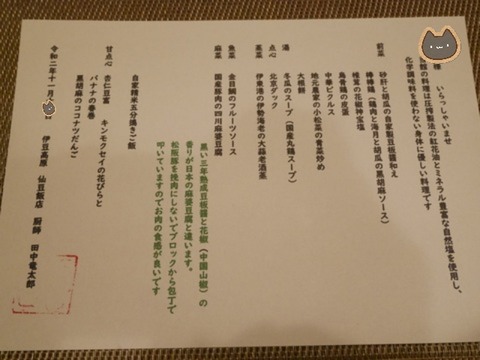 理 いらっしゃいませ
館の料理は圧搾製法の紅花油とミネラル豊富な自然塩を使用し、
化学調味料を使わない身体に優しい料理です
前菜 砂肝と胡瓜の自家製豆板醤和え
棒棒鶏(鶏肉と海月と胡瓜の黒胡麻ソース)
椎茸の花椒神宝塩
烏骨鶏の皮蛋
中華ピクルス
地元農家の小松菜の青菜炒め
大根餅
湯 冬瓜のスープ(国産丸鶏スープ)
点心 北京ダック
葷菜 伊東港の伊勢海老の大蒜老酒蒸
魚菜 金目鯛のフルーツソース
麻菜 国産豚肉の四川麻婆豆腐
黒い三年熟成豆板醤と花椒(中国山椒)の
香りが日本の麻婆豆腐と違います。
松阪豚を挽肉にしないでブロックから包丁で
叩いていますのでお肉の食感が良いです
自家精米五分搗きご飯
甘点心 杏仁豆富 キンモクセイの花びらと
バナナの春巻
黒胡麻のココナツだんご
令和二年十一月
伊豆高原 仙豆飯店 厨師 田中竜太郎